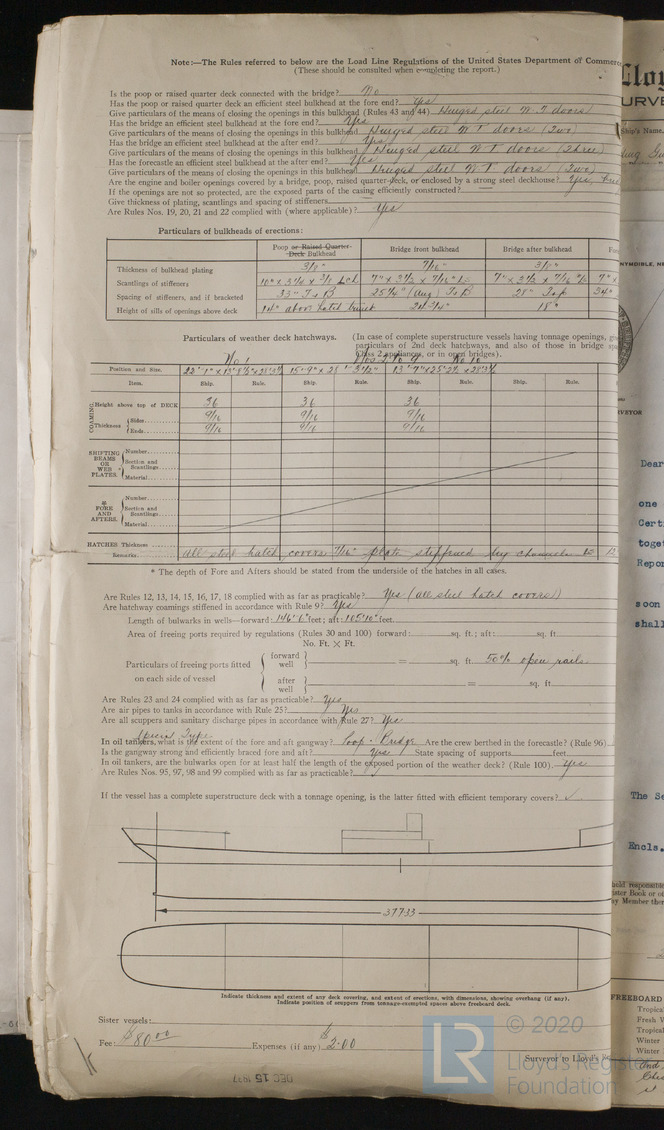 Note:—The Rules referred to below are the Load Line Regulations of the United States Department of Commerce
(These should be consulted when completing the report.)
Is the poop or raised quarter deck connected with the bridge? No
Has the poop or raised quarter deck an efficient steel bulkhead at the fore end? Yes
Give particulars of the means of closing the openings in this bulkhead (Rules 43 and 44) Hinged steel W.T. doors
Has the bridge an efficient steel bulkhead at the fore end? Yes
Give particulars of the means of closing the openings in this bulkhead Hinged steel W T doors (Two)
Has the bridge an efficient steel bulkhead at the after end? Yes
Give particulars of the means of closing the openings in this bulkhead Hinged steel W T doors (Three)
Has the forecastle an efficient steel bulkhead at the after end? Yes
Give particulars of the means of closing the openings in this bulkhead Hinged steel W.T. doors (Two)
Are the engine and boiler openings covered by a bridge, poop, raised quarter-deck, or enclosed by a strong steel deckhouse? Yes,
If the openings are not so protected, are the exposed parts of the casing efficiently constructed?
Give thickness of plating, scantlings and spacing of stiffeners
Are Rules Nos. 19, 20, 21 and 22 complied with (where applicable)? Yes
Particulars of bulkheads of erections:
Poop or Raised Quarter-Deck Bulkhead Bridge front bulkhead Bridge after bulkhead
Thickness of bulkhead plating 3/8" 7/16" 3/8"
Scantlings of stiffeners 10" x 3 3/4 x 3/8 7" x 3 1/2 x 7/16" 7" x 3 1/2 x 7/16
Spacing of stiffeners, and if bracketed 33" T & B 25 3/4" (Avg) T & B 28"
Height of sills of openings above deck 14" above hatch trunk 24 3/4" 18"
Particulars of weather deck hatchways. (In case of complete superstructure vessels having tonnage openings,
particulars of 2nd deck hatchways, and also of those in bridge
Class 2 appliances, or in open bridges).
No 1 No 10
Position and Size.
Item. Ship. Rule. Ship. Rule. Ship. Rule. Ship. Rule.
COAMING
Height above top of DECK 36 36 36
Thickness Sides 9/16 9/16 9/16
Ends 9/16 9/16 9/16
SHIFTING BEAMS OR WEB PLATES.
Number
Section and Scantlings
Material
* FORE AND AFTERS.
Number
Section and Scantlings
Material
HATCHES Thickness
Remarks all steel hatch covers 7/16" plate stiffened by channels
* The depth of Fore and Afters should be stated from the underside of the hatches in all cases.
Are Rules 12, 13, 14, 15, 16, 17, 18 complied with as far as practicable? Yes (all steel hatch covers)
Are hatchway coamings stiffened in accordance with Rule 9? Yes
Length of bulwarks in wells—forward: 146' 6" feet; aft: 105' 10" feet.
Area of freeing ports required by regulations (Rules 30 and 100) forward: sq. ft.; aft: sq. ft
No. Ft. X Ft.
Particulars of freeing ports fitted on each side of vessel
forward well = sq. ft. 50% open rails
after well = sq. ft.
Are Rules 23 and 24 complied with as far as practicable? Yes
Are air pipes to tanks in accordance with Rule 25? Yes
Are all scuppers and sanitary discharge pipes in accordance with Rule 27? Yes
Special Type
In oil tankers, what is the extent of the fore and aft gangway? Poop - Bridge Are the crew berthed in the forecastle? (Rule 96)
Is the gangway strong and efficiently braced fore and aft? Yes State spacing of supports feet
In oil tankers, are the bulwarks open for at least half the length of the exposed portion of the weather deck? (Rule 100). Yes
Are Rules Nos. 95, 97, 98 and 99 complied with as far as practicable?
If the vessel has a complete superstructure deck with a tonnage opening, is the latter fitted with efficient temporary covers?
377.33
Indicate thickness and extent of any deck covering, and extent of erections, with dimensions, showing overhang (if any).
Indicate position of scuppers from tonnage-exempted spaces above freeboard deck.
Sister vessels:
Fee: $80.00 Expenses (if any) $2.00
Surveyor to Lloyd's
DEC 15 1937
Ship's Name
Dear
one
Cert
toget
Repor
soon
shall
The Se
Encls.
FREEBOARD
Tropical
Fresh W
Tropical
Winter
Winter
LR
© 2020
Lloyd's Register
Foundation